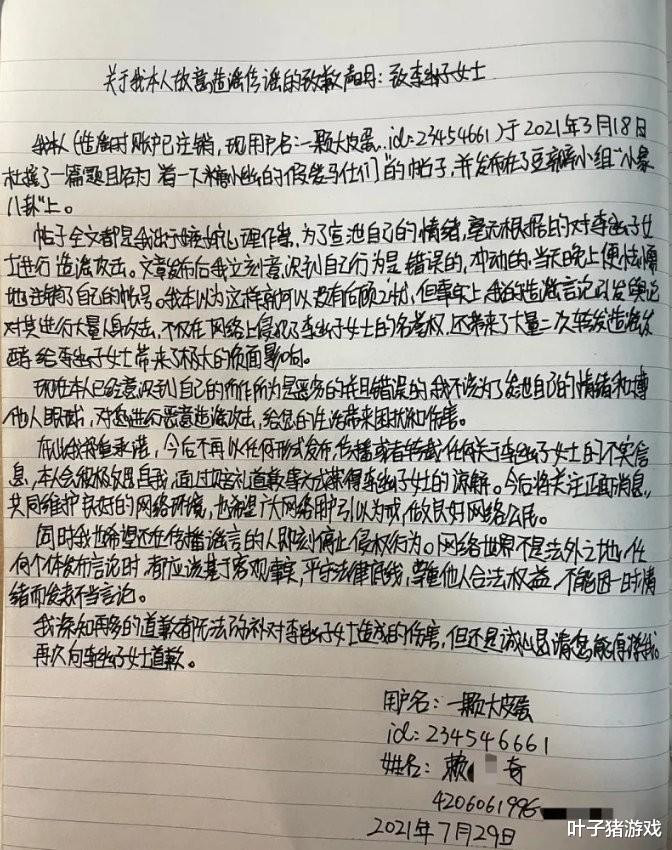 关于我本人故意造谣传谣的致歉声明：致李幽子女士
我本人（造谣时账户已注销，现用户名：一颗大皮蛋 id=23454661）于2021年3月18日
杜撰了一篇题目名为“看一下糯小幽的假爱马仕们”的帖子，并发布在了豆瓣小组“小象
八卦”上。
帖子全文都是我出于嫉妒心理作祟，为了宣泄自己的情绪，毫无根据的对李幽子女
士进行造谣攻击。文章发布后我立刻意识到自己行为是错误的，冲动的，当天晚上便
地注销了自己的帐号。我本以为这样就可以没有后顾之忧，但事实上我的造谣言论引发舆论
对其进行大量人身攻击，不仅在网络上侵犯了李幽子女士的名誉权，还带来了大量二次转发造谣发
酵给李幽子女士带来了极大的负面影响。
现在本人已经意识到自己的所作所为是恶劣的并且错误的我不该为了发泄自己的情绪和博
他人眼球，对您进行恶意造谣攻击，给您的生活带来困扰和伤害。
在此我郑重承诺，今后不再以任何形式发布，传播或者转载任何关于李幽子女士的不实信
息，本人会积极反思自我，通过赔礼道歉等方式获得李幽子女士的谅解。今后将关注正面消息，
共同维护良好的网络环境，也希望广大网络用户引以为戒，做良好网络公民。
同时我也希望还在传播谣言的人即刻停止侵权行为。网络世界不是法外之地，任
何个体发布言论时，都应该基于客观事实，平守法律底线，尊重他人合法权益，不能因一时情
绪而发表不当言论。
我深知再多的道歉都无法弥补对李幽子女士造成的伤害，但还是诚心恳请您能原谅我。
再次向李幽子女士道歉。
用户名：一颗大皮蛋
id=234546661
姓名：赖 奇
4206061996
2021年7月29日
叶子猪游戏